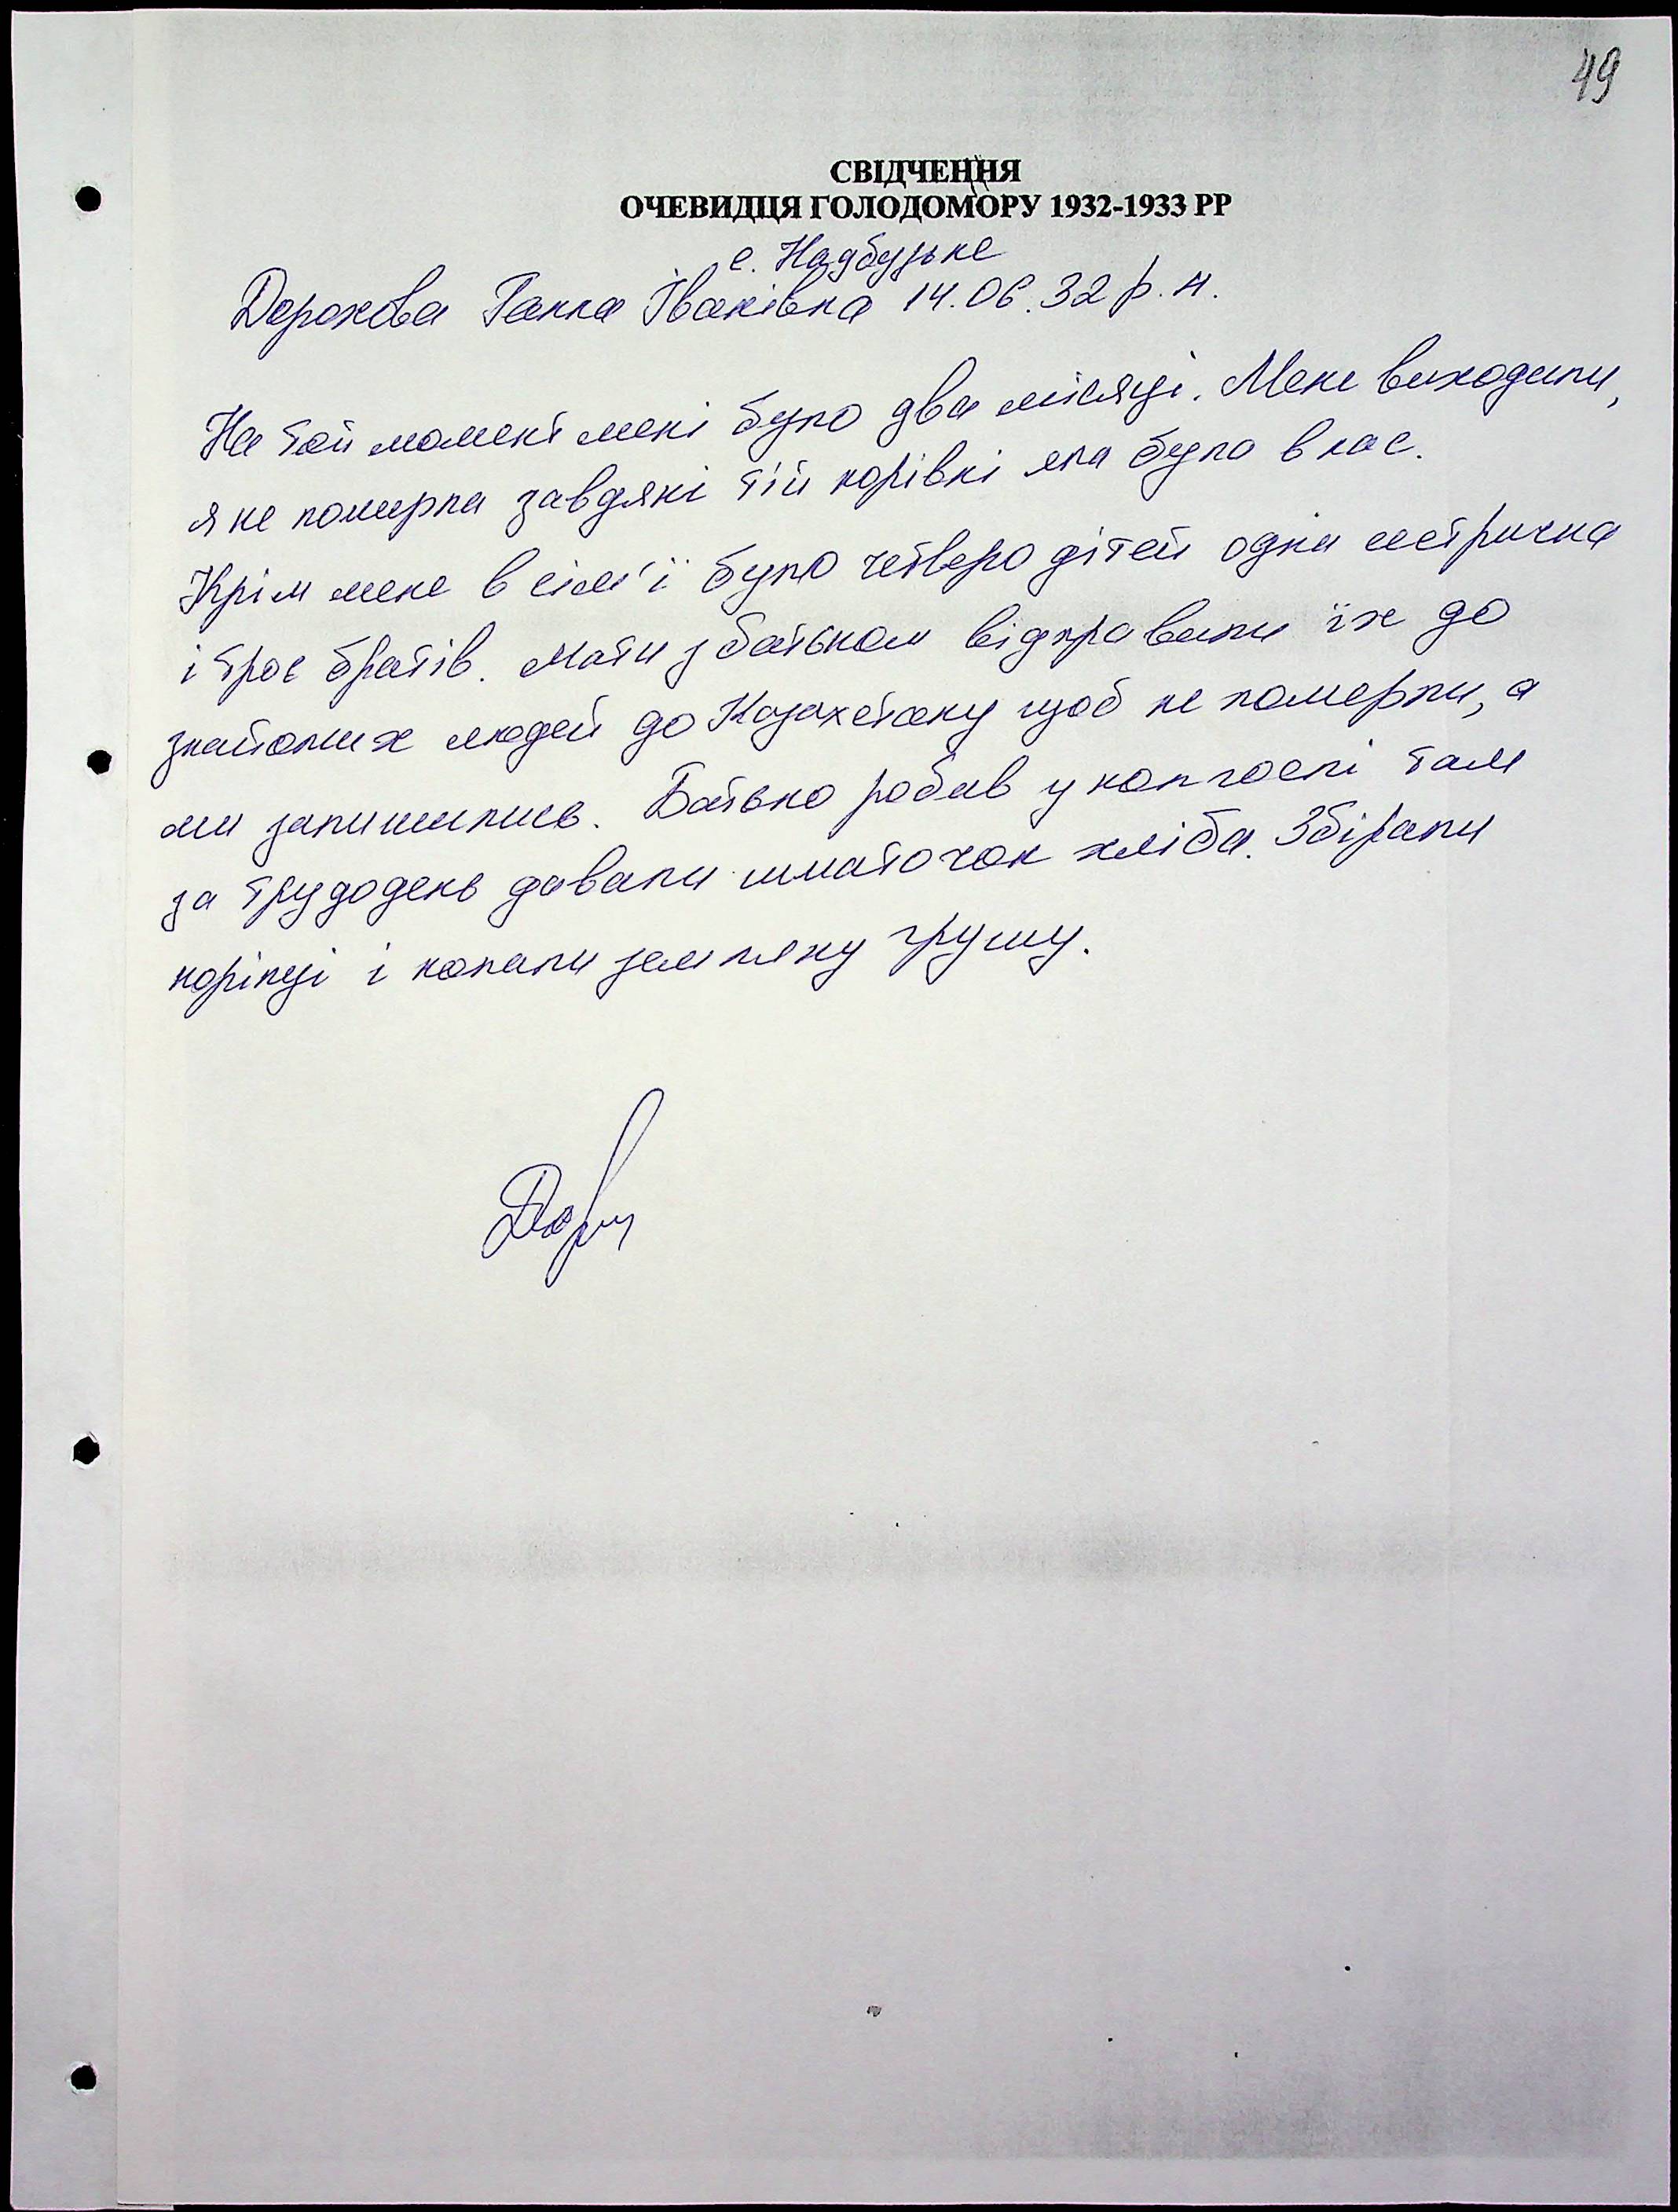 49
СВІДЧЕННЯ
ОЧЕВИДЦЯ ГОЛОДОМОРУ 1932-1933 РР
с. Надбузьке
Дорохова Ганна Іванівна 14.06.32 р.н.
На той момент мені було два місяці. Мене виходили,
я не померла завдякі тій корівкі яка була в нас.
Крім мене в сім'ї було четверо дітей одна сестричка
і троє братів. Мати з батьком відправили їх до
знайомих людей до Казахстану щоб не померли, а
ми залишились. Батько робив у колгоспі там
за трудодень давали шматочок хліба. Збірали
корінці і копали земляну грушу.